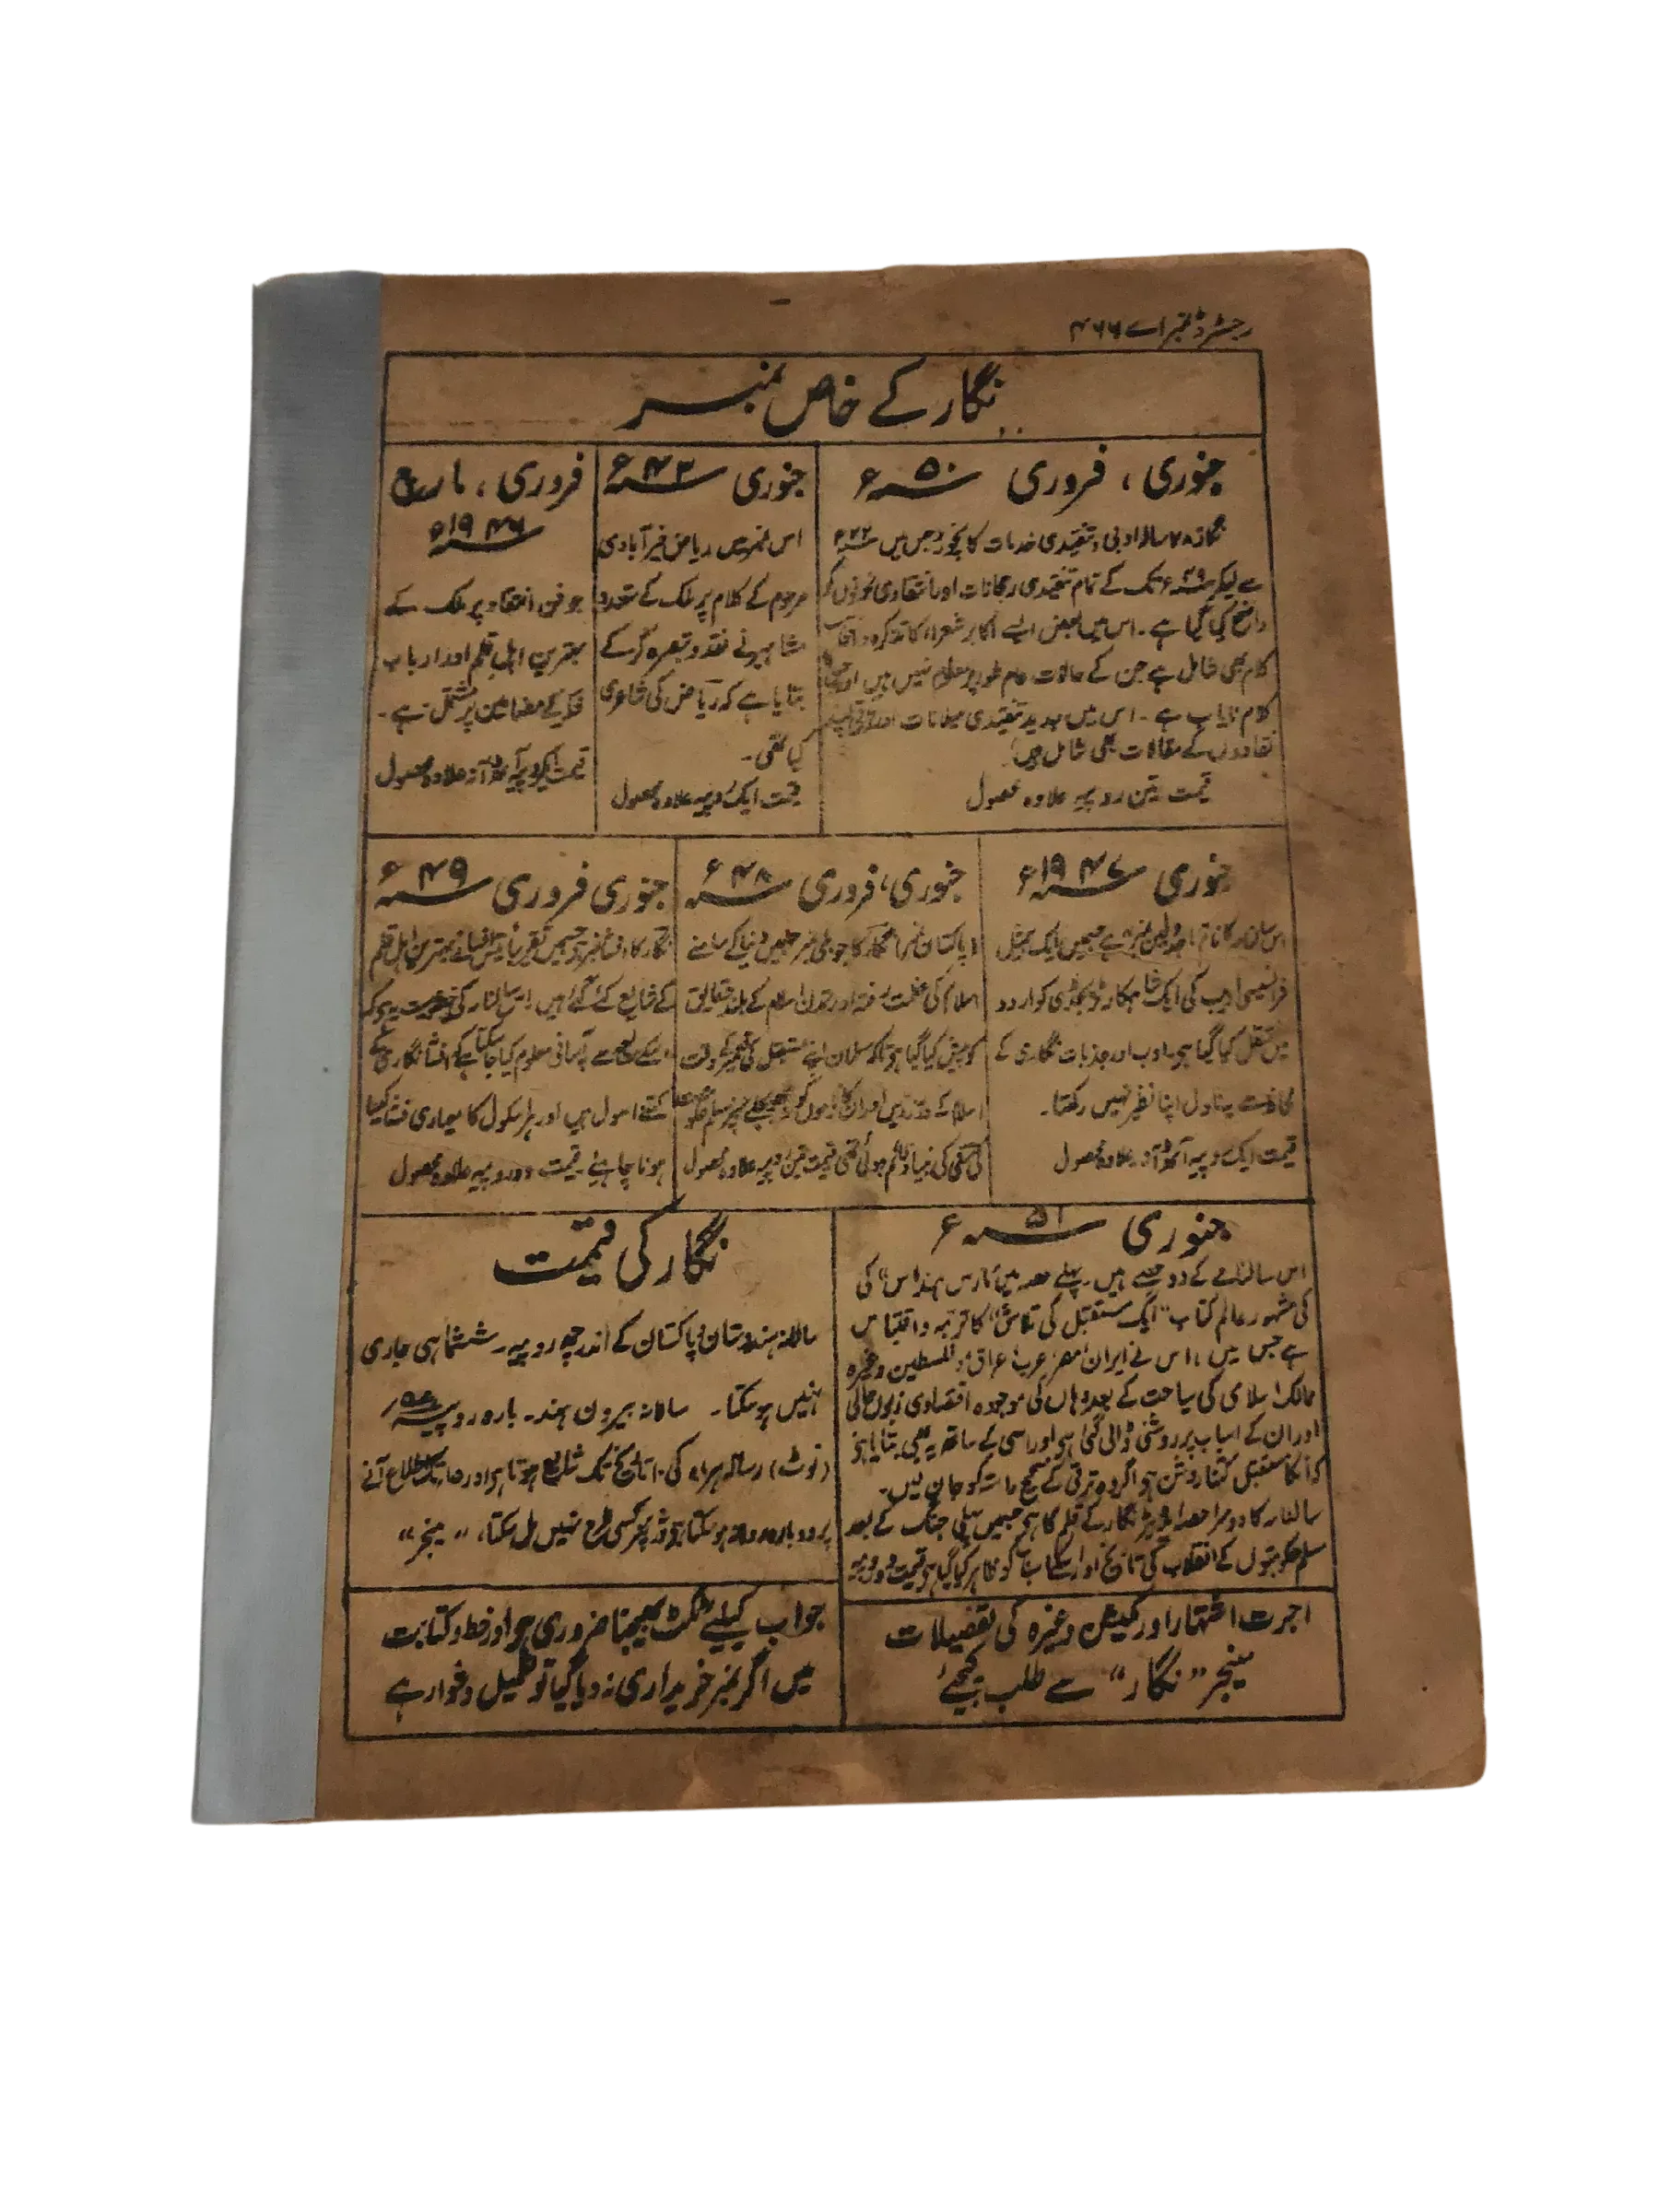 رجسٹرڈ نمبر اے ۴۶۶
نگار کے خاص نمبر
جنوری ، فروری ۵۰ء
نگار ۲۸ سالہ ادبی و تنقیدی خدمات کا نچوڑ جس میں ۲۲ء
سے لیکر ۴۹ء تک کے تمام تنقیدی رجحانات اور انتقادی
واضح کیا گیا ہے ۔ اس میں بعض ایسے اکابر شعراء کا تذکرہ و انتخاب
کلام بھی شامل ہے جن کے حالات عام طور پر معلوم نہیں ہیں اور جن کا
کلام نایاب ہے ۔ اس میں جدید تنقیدی میلانات اور
نقادوں کے مقالات بھی شامل ہیں
قیمت تین روپیہ علاوہ محصول
جنوری ۴۳ء
اس نمبر میں ریاض خیر آبادی
مرحوم کے کلام پر ملک کے متعدد
مشاہیر نے نقد و تبصرہ کر کے
بتایا ہے کہ ریاض کی شاعری
کیا تھی ۔
قیمت ایک روپیہ علاوہ محصول
فروری ، مارچ
۱۹۴۶ء
جو فن انتقاد پر ملک کے
بہترین اہل قلم اور ارباب
فکر کے مضامین پر مشتمل ہے ۔
قیمت ایک روپیہ آٹھ آنہ علاوہ محصول
جنوری ۱۹۴۷ء
اس سالنامہ کا نام ہے جسمیں ایک بے مثل
فرانسیسی ادیب کی ایک شاہکار ٹریجڈی کو اردو
میں منتقل کیا گیا ہی ۔ ادب اور جذبات نگاری کے
لحاظ سے یہ ناول اپنا نظیر نہیں رکھتا ۔
قیمت ایک روپیہ آٹھ آنہ علاوہ محصول
جنوری ، فروری ۴۸ء
(پاکستان نمبر) نگار کا جوبلی نمبر جسمیں دنیا کے سامنے
اسلام کی عظمت رفتہ اور تمدن اسلام کے بلند حقایق
کو پیش کیا گیا ہی تاکہ مسلمان اپنے مستقبل کی تعمیر کے وقت
اسلاف کے
کی ترقی کی بنیاد قائم ہوئی تھی قیمت تین روپیہ علاوہ محصول
جنوری فروری ۴۹ء
نگار کا افسانہ نمبر جسمیں تقریباً افسانے بہترین اہل قلم
کے شایع کئے گئے ہیں اس سالنامہ کی خصوصیت یہ ہی کہ
اسکے مطالعے سے بآسانی معلوم کیا جا سکتا ہے کہ افسانہ نگاری کے
کتنے اصول ہیں اور ہر اسکول کا معیاری فسانہ کیسا
ہونا چاہیئے قیمت دو روپیہ علاوہ محصول
جنوری ۵۱ء
اس سالنامے کے دو حصے ہیں ۔ پہلے حصہ میں کی
کی مشہور عالم کتاب "ایک مستقبل کی تلاش" کا ترجمہ و اقتباس
ہے جس میں اس نے ایران، مصر، عرب، عراق، فلسطین وغیرہ
ممالک اسلامی کی سیاحت کے بعد وہاں کی موجودہ اقتصادی زبوں حالی
اور ان کے اسباب پر روشنی ڈالی گئی ہی اور اسی کے ساتھ یہ بھی بتایا ہو
کہ انکا مستقبل کتنا روشن ہی اگر وہ ترقی کے صحیح راستہ کو جان لیں ۔
سالنامہ کا دوسرا حصہ ایڈیٹر نگار کے قلم کا ہی جسمیں پہلی جنگ کے بعد
مسلم حکومتوں کے انقلاب کی تاریخ اور اسکے اسباب کو ظاہر کیا گیا ہی قیمت دو روپیہ
نگار کی قیمت
سالانہ ہندوستان و پاکستان کے اندر چھ روپیہ ۔ ششماہی جاری
نہیں ہو سکتا ۔ سالانہ بیرون ہند ۔ بارہ روپیہ
(نوٹ) رسالہ ہر ماہ کی ۱۰ تاریخ تک شایع ہوتا ہی اور تک اطلاع آنے
پر دوبارہ روانہ ہو سکتا ہی ورنہ پھر کسی طرح نہیں مل سکتا ، "منیجر"
اجرت اشتہار اور کمیشن وغیرہ کی تفصیلات
مینجر "نگار" سے طلب کیجئے
جواب کیلئے ٹکٹ بھیجنا ضروری ہی اور خط و کتابت
میں اگر نمبر خریداری نہ دیا گیا تو تعمیل دشوار ہے